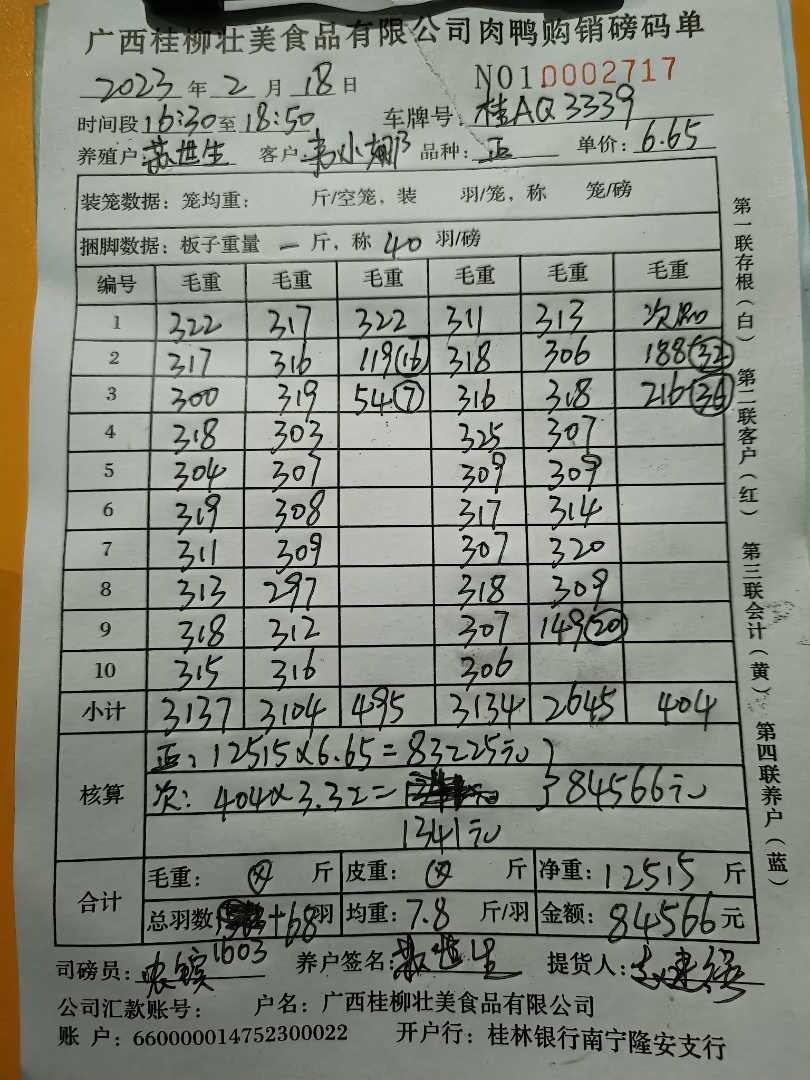 广西桂柳壮美食品有限公司肉鸭购销磅码单
2023 年 2 月 18 日 NO1 0002717
时间段 16:30 至 18:50 车牌号: 桂AQ3339
养殖户 苏世生 客户: 韦小娜 品种: 正 单价: 6.65
装笼数据: 笼均重: 斤/空笼, 装 羽/笼, 称 笼/磅
捆脚数据: 板子重量 一 斤, 称 40 羽/磅
编号 毛重 毛重 毛重 毛重 毛重 毛重
1 322 317 322 311 313 次品
2 317 316 119(16) 318 306 188(32)
3 300 319 54(7) 316 318 216(36)
4 318 303 325 307
5 304 307 309 309
6 319 308 317 314
7 311 309 307 320
8 313 297 318 309
9 318 312 307 149(20)
10 315 316 306
小计 3137 3104 495 3134 2645 404
核算 正: 12515×6.65=83225元 } 84566元
次: 404×3.32=
1341元
合计 毛重: 斤 皮重: 斤 净重: 12515 斤
总羽数 +68羽 均重: 7.8 斤/羽 金额: 84566 元
1603
司磅员: 养户签名: 苏世生 提货人:
公司汇款账号: 户名: 广西桂柳壮美食品有限公司
账 户: 660000014752300022 开户行: 桂林银行南宁隆安支行
第一联存根(白) 第二联客户(红) 第三联会计(黄) 第四联养户(蓝)